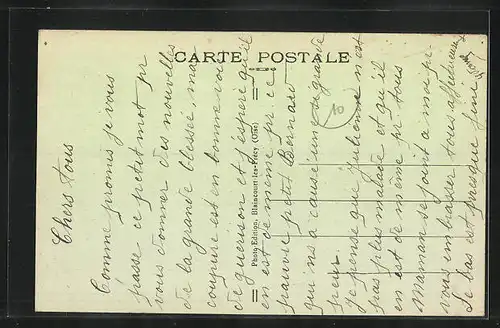 CARTE POSTALE
Photo-Edition, Blaincourt-les-Précy (Oise)
Chers tous
Comme promis je vous
passe ce petit mot pr
vous donner des nouvelles
de la grande blessée, ma
coupure est en bonne voie
de guérison et j'espère qu'il
en est de même pr ce
pauvre petit Bernard
qui ns a causé une si grande
peur
Je pense que Julienne n'est
pas plus malade et qu'il
en est de même pr tous
Maman se joint à moi pr
vous embrasser tous affectueusement
Le bas est presque fini